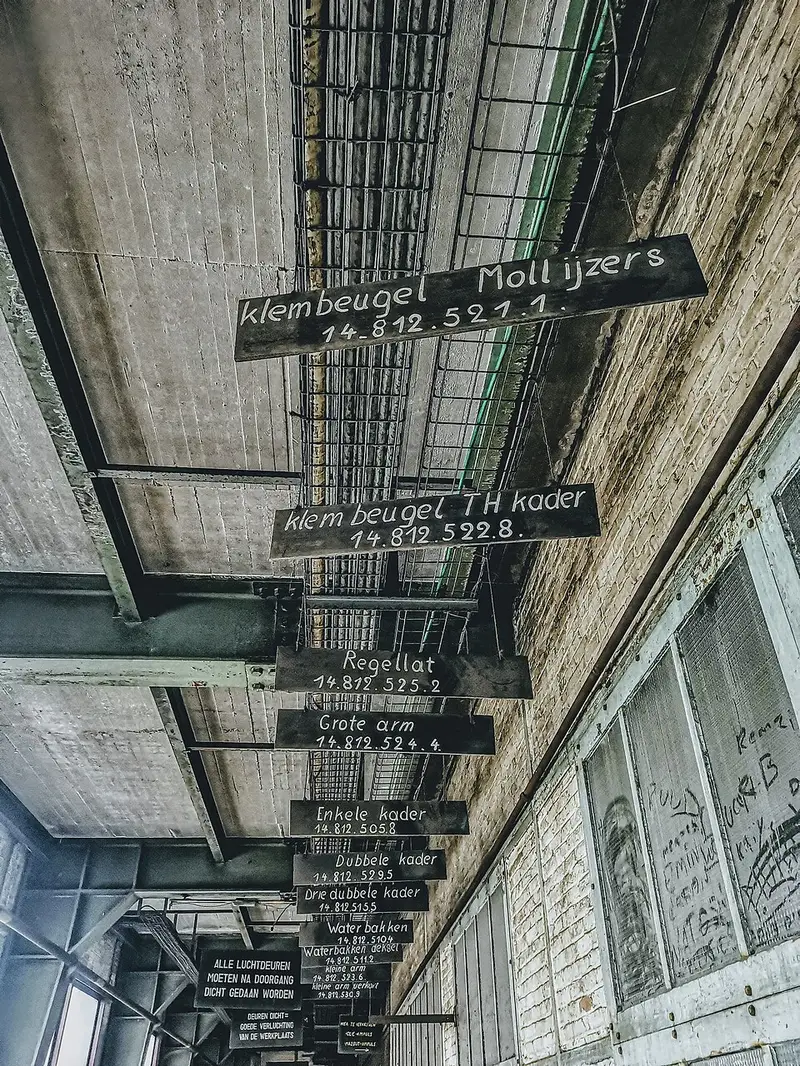 klembeugel Mollijzers
14.812.521.1.
klembeugel TH kader
14.812.522.8.
Regellat
14.812.525.2
Grote arm
14.812.524.4.
Enkele kader
14.812.505.8
Dubbele kader
14.812.529.5
Driedubbele kader
14.812.515.5
Waterbakken
14.812.510.4
Waterbakken deksel
14.812.511.2
kleine arm
14.812.523.6
kleine arm verkort
14.812.530.9
ALLE LUCHTDEUREN
MOETEN NA DOORGANG
DICHT GEDAAN WORDEN
DEUREN DICHT=
GOEDE VERLUCHTING
VAN DE WERKPLAATS